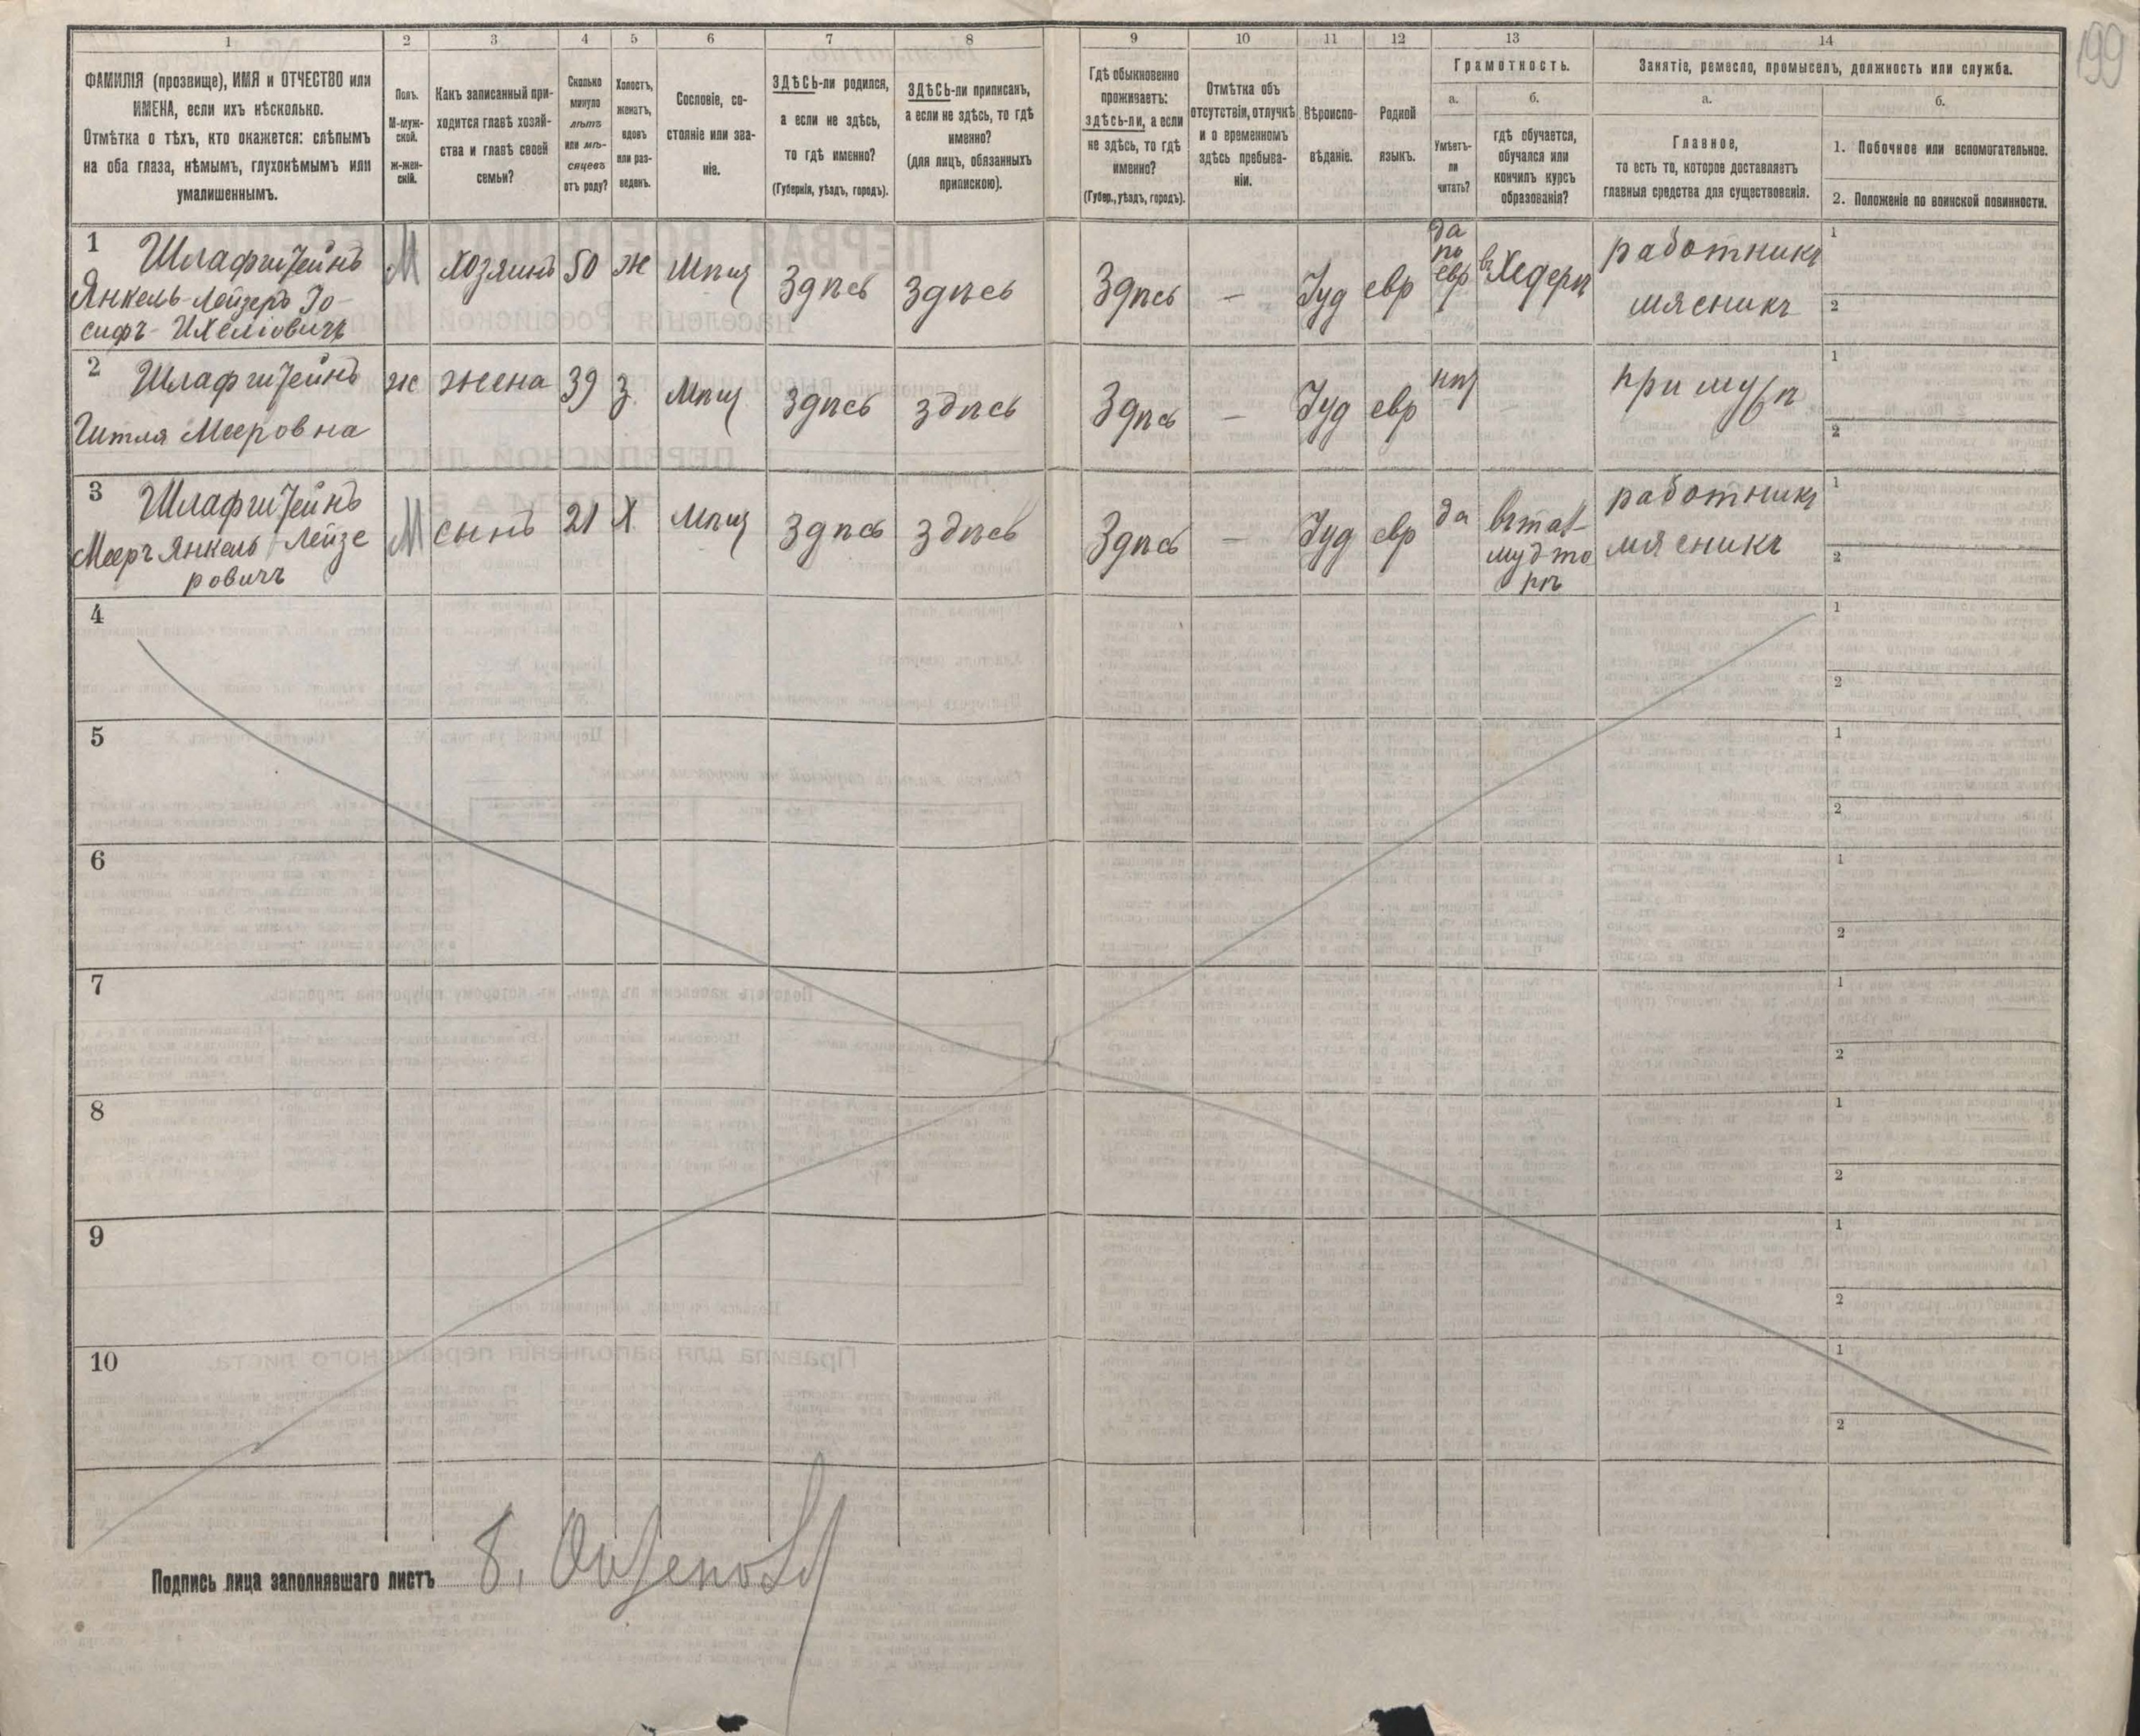 199
1
2
3
4
5
6
7
8
9
10
11
12
13
14
ФАМИЛІЯ (прозвище), ИМЯ и ОТЧЕСТВО или
ИМЕНА, если ихъ нѣсколько.
Отмѣтка о тѣхъ, кто окажется: слѣпымъ
на оба глаза, нѣмымъ, глухонѣмымъ или
умалишеннымъ.
Полъ.
М-муж-
ской.
ж-жен-
скій.
Какъ записанный при-
ходится главѣ хозяй-
ства и главѣ своей
семьи?
Сколько
минуло
лѣтъ
или мѣ-
сяцевъ
отъ роду?
Холостъ,
женатъ,
вдовъ
или раз-
веденъ.
Сословіе, со-
стояніе или зва-
ніе.
ЗДѢСЬ-ли родился,
а если не здѣсь,
то гдѣ именно?
(Губернія, уѣздъ, городъ).
ЗДѢСЬ-ли приписанъ,
а если не здѣсь, то гдѣ
именно?
(для лицъ, обязанныхъ
припискою).
Гдѣ обыкновенно
проживаетъ:
здѣсь-ли, а если
не здѣсь, то гдѣ
именно?
(Губер., уѣздъ, городъ).
Отмѣтка объ
отсутствіи, отлучкѣ
и о временномъ
здѣсь пребыва-
ніи.
Вѣроиспо-
вѣданіе.
Родной
языкъ.
Грамотность.
а.
Умѣетъ-
ли
читать?
б.
гдѣ обучается,
обучался или
кончилъ курсъ
образованія?
Занятіе, ремесло, промыселъ, должность или служба.
а.
Главное,
то есть то, которое доставляетъ
главныя средства для существованія.
б.
1. Побочное или вспомогательное.
2. Положеніе по воинской повинности.
1 Шлафштейнъ
Янкель-Лейзеръ Іо-
сифъ-Ихелiовичъ
М
хозяинъ
50
ж
Мѣщ
Здѣсь
Здѣсь
Здѣсь
—
Іуд
евр
да
по
евр
въ Хедерѣ
работникъ
мясникъ
1
2
2 Шлафштейнъ
Гитля Мееровна
ж
жена
39
з
Мѣщ
Здѣсь
здѣсь
Здѣсь
—
Іуд
евр
нѣт
при мужѣ
1
2
3 Шлафштейнъ
Мееръ Янкель-Лейзе
ровичъ
М
сынъ
21
Х
Мѣщ
Здѣсь
здѣсь
Здѣсь
—
Іуд
евр
да
въ тал-
муд то
рѣ
работникъ
мясникъ
1
2
4
1
2
5
1
2
6
1
2
7
1
2
8
1
2
9
1
2
10
1
2
Подпись лица заполнявшаго листъ